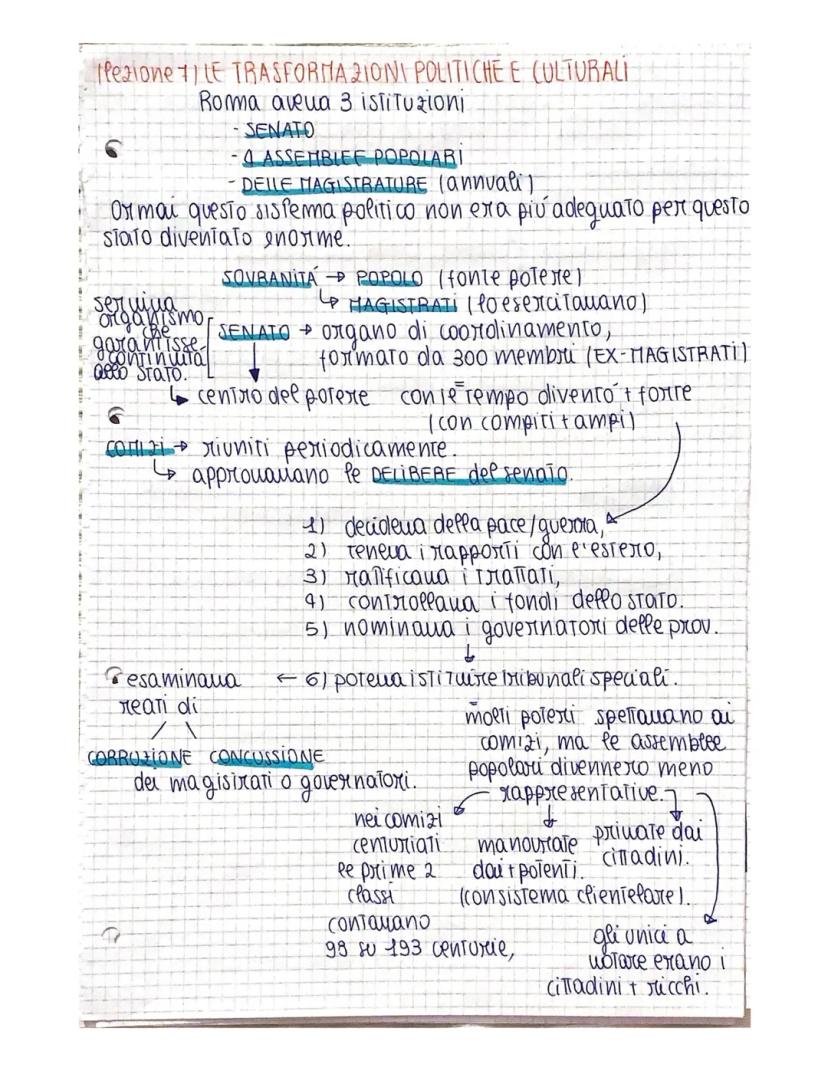 (lezione 7) LE TRASFORMAZIONI POLITICHE E CULTURALI
Roma aveva 3 istituzioni
- SENATO
- 4 ASSEMBLEE POPOLARI
- DELLE MAGISTRATURE (annuali)
Ormai questo sistema politico non era più adeguato per questo
stato diventato enorme.
SOVRANITÀ → POPOLO (fonte potere)
↳ MAGISTRATI (lo esercitavano)
serviva
organismo
che
garantisse
continuità
allo stato.
SENATO → organo di coordinamento,
formato da 300 membri (EX-MAGISTRATI)
↳ centro del potere
con il tempo diventò + forte
(con compiti + ampi)
COMIZI → riuniti periodicamente.
↳ approvavano le DELIBERE del senato.
1) decideva della pace/guerra,
2) teneva i rapporti con l'estero,
3) ratificava i trattati,
4) controllava i fondi dello stato.
5) nominava i governatori delle prov.
↓
← 6) poteva istituire tribunali speciali.
esaminava
reati di
CORRUZIONE CONCUSSIONE
dei magistrati o governatori.
molti poteri spettavano ai
comizi, ma le assemblee
popolari divennero meno
rappresentative.
nei comizi
centuriati
le prime 2
classi
contavano
98 su 193 centurie,
manovrate
dai + potenti.
(con sistema clientelare).
private dai
cittadini.
gli unici a
votare erano i
cittadini + ricchi.